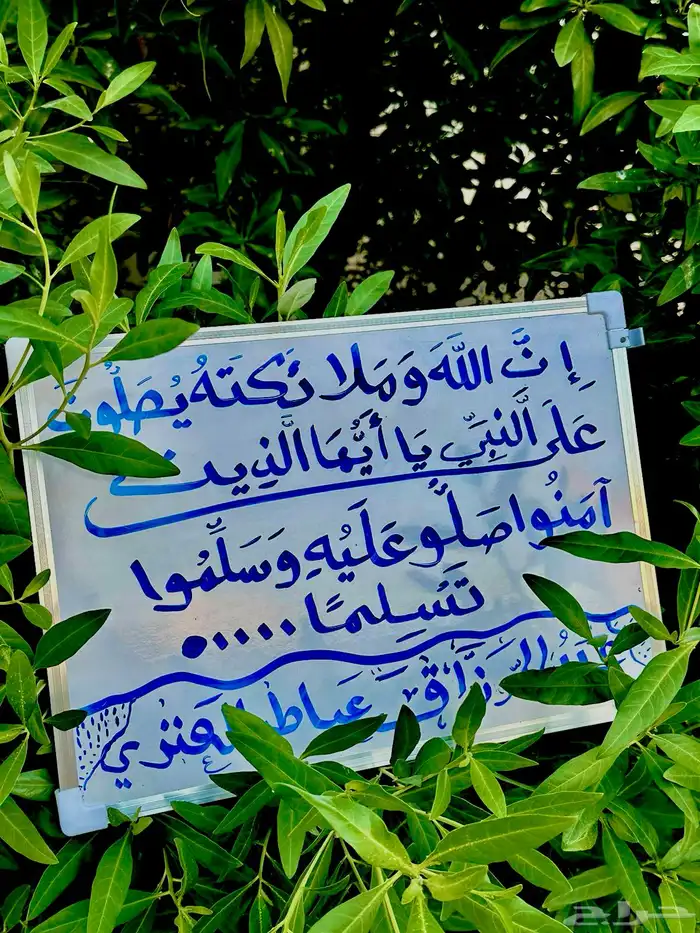 إِنَّ اللَّهَ وَمَلائكَتَهُ يُصَلُّونَ
عَلَى النَّبِيِّ يَا أَيُّهَا الَّذِينَ
آمَنُوا صَلُّو عَلَيْهِ وَسَلِّمُوا
تَسْلِيمًا .....
عبد الرزاق عياط العنزي
حراج